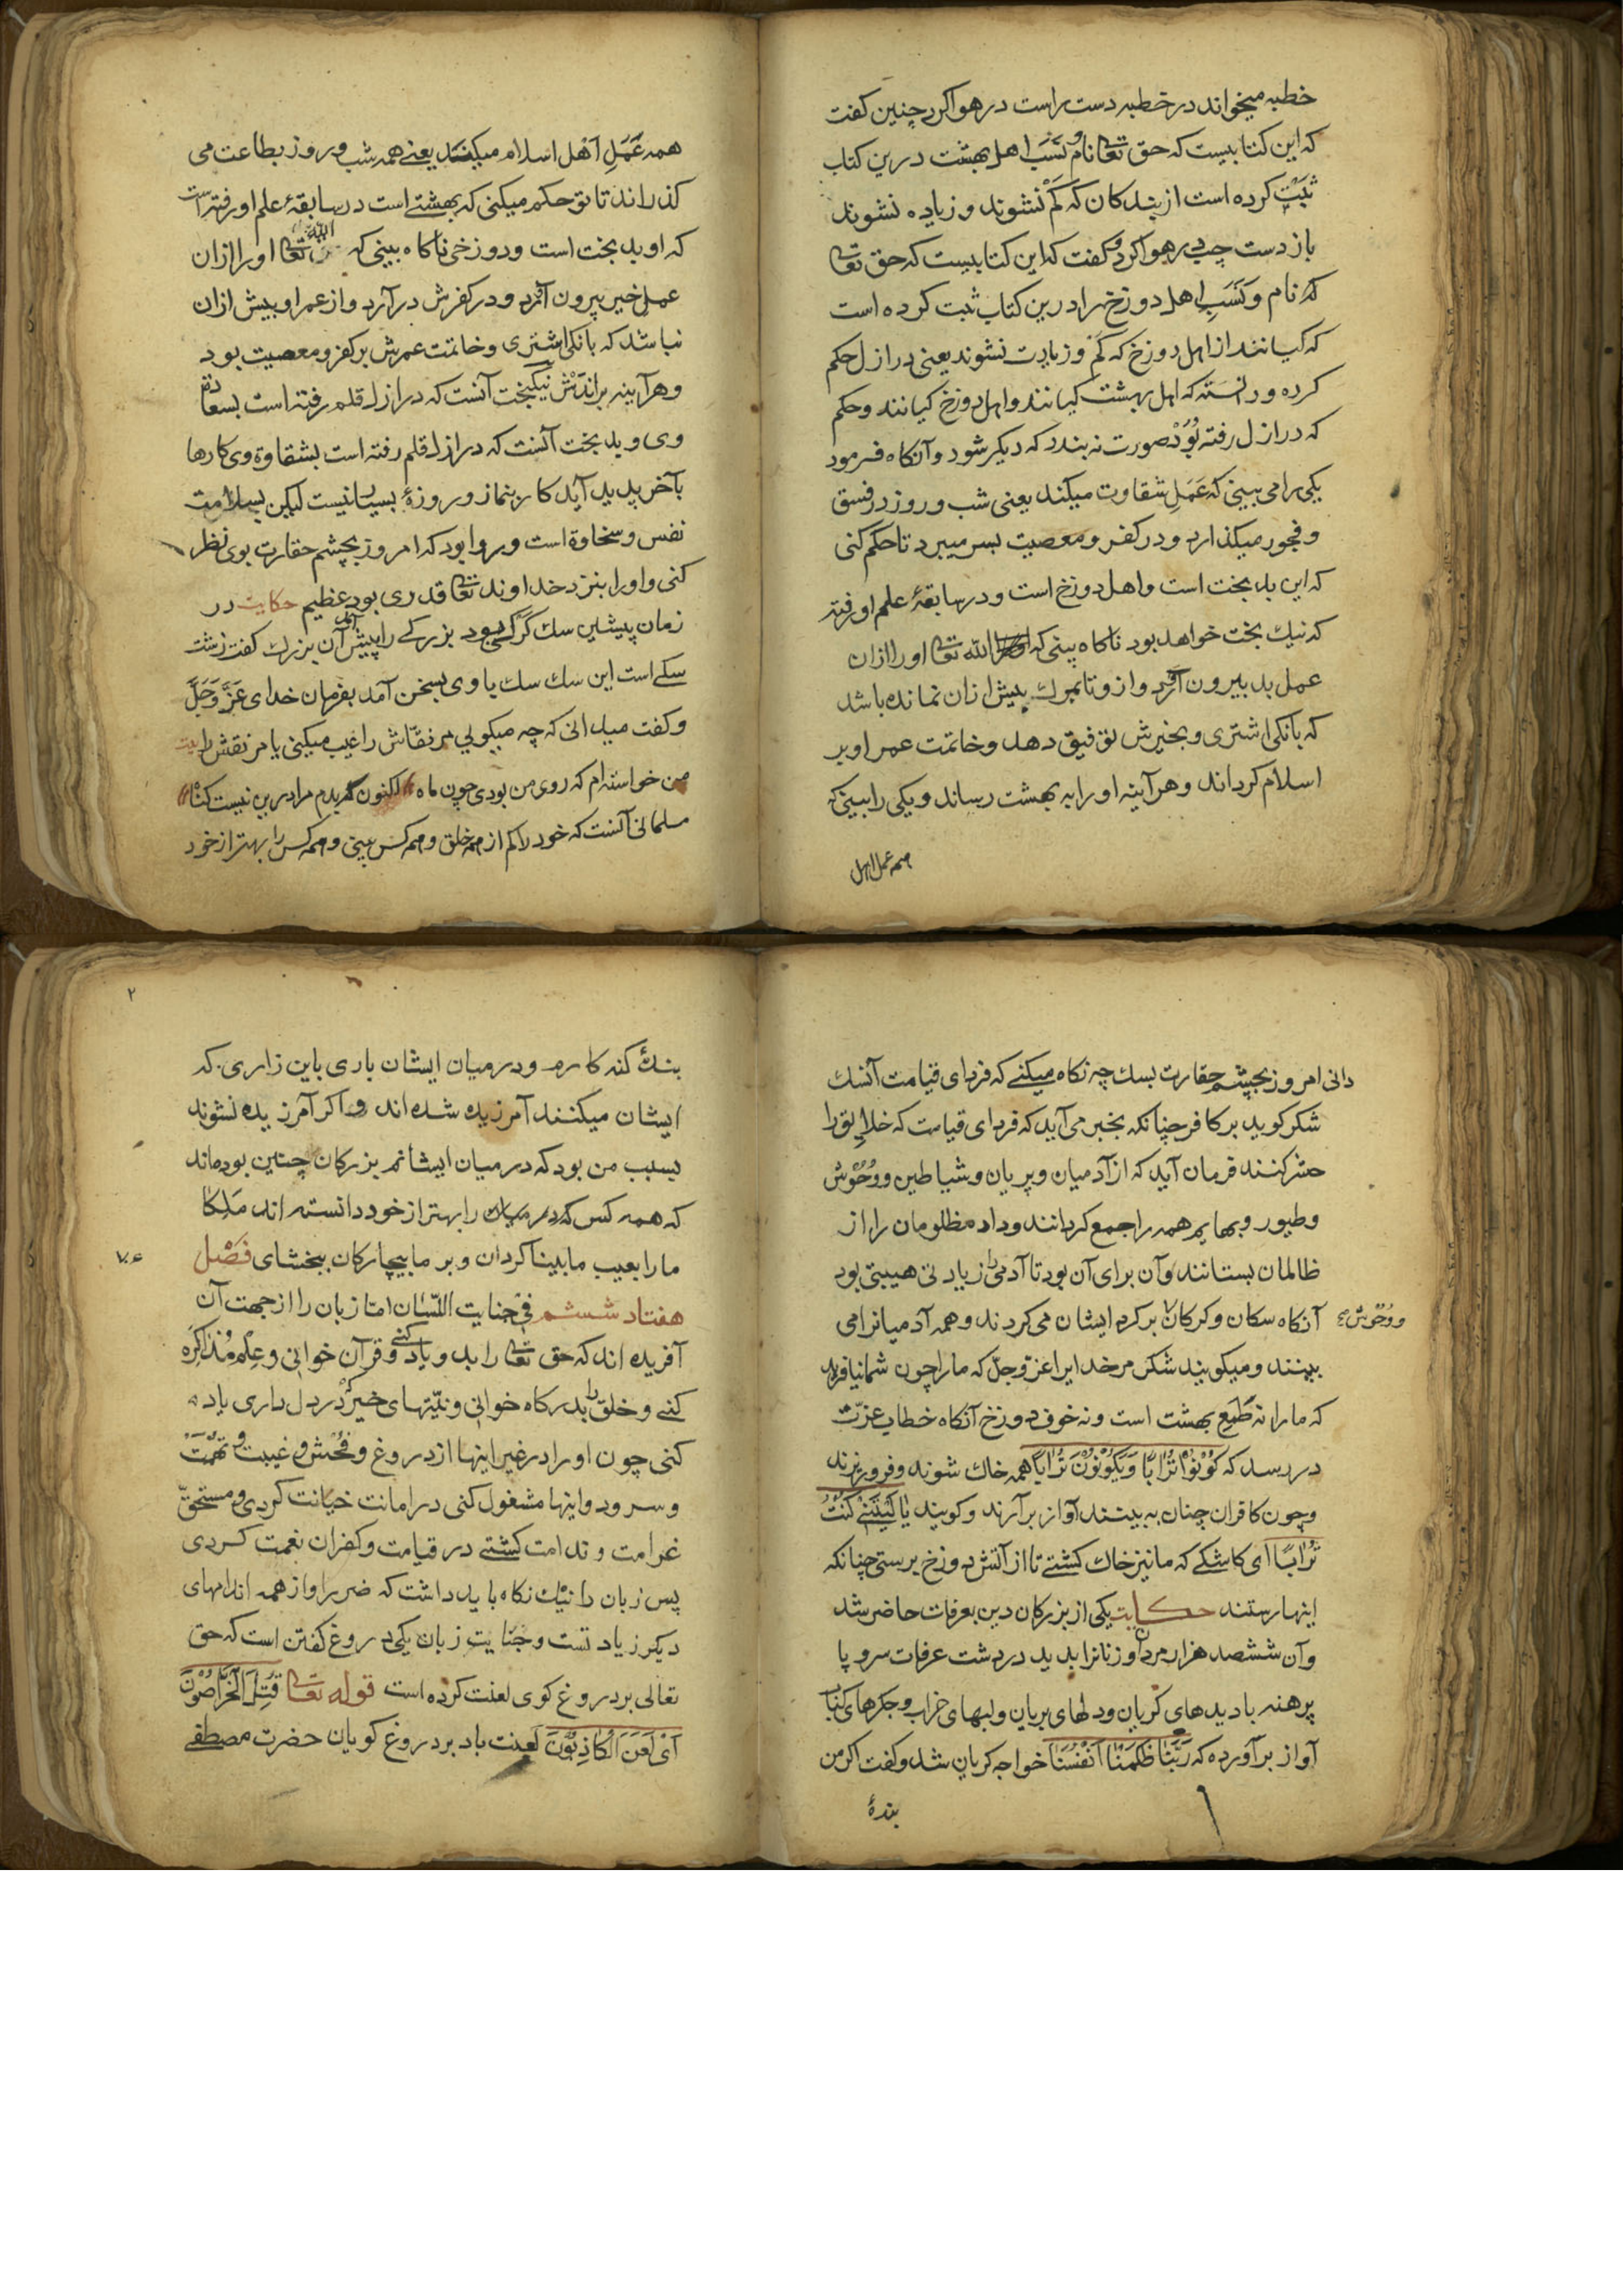 خطبه میخواند در خطبه دست راست در هوا کرد چنین کفت
که این کتابیست که حق تعا نام و نسب اهل بهشت درین کتاب
ثبت کرده است از بندکان که کم نشوند و زیاده نشوند
باز دست چپ در هوا کرد و کفت که این کتابیست که حق تعا
که نام و نسب اهل دوزخ را درین کتاب ثبت کرده است
که کیانند از اهل دوزخ که کم و زیادت نشوند یعنی در ازل حکم
کرده و دانسته که اهل بهشت کیانند و اهل دوزخ کیانند و حکم
که در ازل رفته بود صورت نه بندد که دیکر شود و آنکاه فرمود
یکی را می بینی که عمل شقاوت میکند یعنی شب و روز در فسق
و فجور میکذارد و در کفر و معصیت بسر میبرد تا حکم کنی
که این بد بخت است و اهل دوزخ است و در سابقهٔ علم او رفته
که نیک بخت خواهد بود ناکاه بینی که الله تعا او را ازان
عمل بد بیرون آرد و از و تا بمرک بیش ازان نمانده باشد
که بانکی اشتری و بخیرش توفیق دهد و خاتمت عمر او بر
اسلام کرداند و هر آینه او را به بهشت رساند و یکی را بینی که
همه عمل اهل
همه عمل اهل اسلام میکند یعنی همه شب و روز بطاعت می
کذراند تا تو حکم میکنی که بهشتی است در سابقهٔ علم او رفته است
که او بد بخت است و دوزخی ناکاه بینی که الله تعا او را ازان
عمل خیر بیرون آرد و در کفرش در آرد و از عمر او بیش ازان
نباشد که بانکی اشتری و خاتمت عمرش بر کفر و معصیت بود
و هر آینه براندش نیکبخت آنست که در ازل قلم رفته است بسعادة
وی و بد بخت آنست که در ازل قلم رفته است بشقاوة وی کارها
بآخر پدید آید کار بنماز و روزهٔ بسیار نیست لیکن بسلامت
نفس و سخاوة است و روا بود که امروز بچشم حقارت بوی نظر
کنی و او را بنزد خداوند تعا قدری بود عظیم حکایت در
زمان پیشین سک کرکی بود بزرکی را پیش آمد آن بزرک کفت زشت
سکی است این سک سک با وی بسخن آمد بفرمان خدای عز وجل
و کفت میدانی که چه میکویی مر نقاش را عیب میکنی یا مر نقش را بیت
من خواسته ام که روی من بودی چون ماه لکنون مرا درین نیست کناه
مسلمانی آنست که خود را کم از همه خلق و همه کس بینی و همه کس را بهتر از خود
دانی امروز بچشم حقارت بسک چه نکاه میکنی که فردای قیامت آنسک
شکر کوید بر کافر چنانکه بخبر می آید که فردای قیامت که خلایق را
حشر کنند فرمان آید که از آدمیان و پریان و شیاطین و وحوش
و طیور و بهایم همه را جمع کردانند و داد مظلومان را از
ظالمان بستانند و آن برای آن بود تا آدمی را زیادتی هیبتی بود
آنکاه سکان و کرکان بر کرد ایشان می کردند و همه آدمیانرا می
و وحوش
بینند و میکویند شکر مر خدایرا عز وجل که ما را چون شما نیافرید
که ما را نه طمع بهشت است و نه خوف دوزخ آنکاه خطاب عزت
در رسد که کونوا ترابا ویکونون ترابا همه خاک شوند و فرو ریزند
و چون کافران چنان به بینند آواز بر آرند و کویند یا لیتنی کنت
ترابا ای کاشکی که ما نیز خاک کشتی تا از آتش دوزخ برستی چنانکه
اینها رستند حکایت یکی از بزرکان دین بعرفات حاضر شد
و آن ششصد هزار مردان و زنانرا بدید در دشت عرفات سر و پا
برهنه با دیدهای کریان و دلهای بریان و لبهای خراب و جکرهای کباب
آواز بر آورده که ربنا ظلمنا انفسنا خواجه کریان شد و کفت اکر من
بندهٔ
۲
بندهٔ کنه کارم و در میان ایشان باری باین زاری که
ایشان میکنند آمرزیده شده اند و اکر آمرزیده نشوند
بسبب من بود که در میان ایشانم بزرکان چنین بوده اند
که همه کس را بهتر از خود دانسته اند ملکا
ما را بعیب ما بینا کردان و بر ما بیچارکان ببخشای فصل
هفتاد ششم فی جنایت اللسان اما زبان را از جهت آن
آفریده اند که حق تعا را بد و یاد کنی و قرآن خوانی و علم مذاکره
کنی و خلق را بدرکاه خوانی و نیتهای خیر که در دل داری یاد
کنی چون او را در غیر اینها از دروغ و فحش و غیبت و تهمت
و سرود و اینها مشغول کنی در امانت خیانت کردی و مستحق
غرامت و ندامت کشتی در قیامت و کفران نعمت کردی
پس زبان را نیک نکاه باید داشت که ضرر او از همه اندامهای
دیکر زیادتست و جنایت زبان یکی دروغ کفتن است که حق
تعالی بر دروغ کوی لعنت کرده است قوله تعا قتل الخراصون
ای لعن الکاذبون لعنت باد بر دروغ کویان حضرت مصطفی